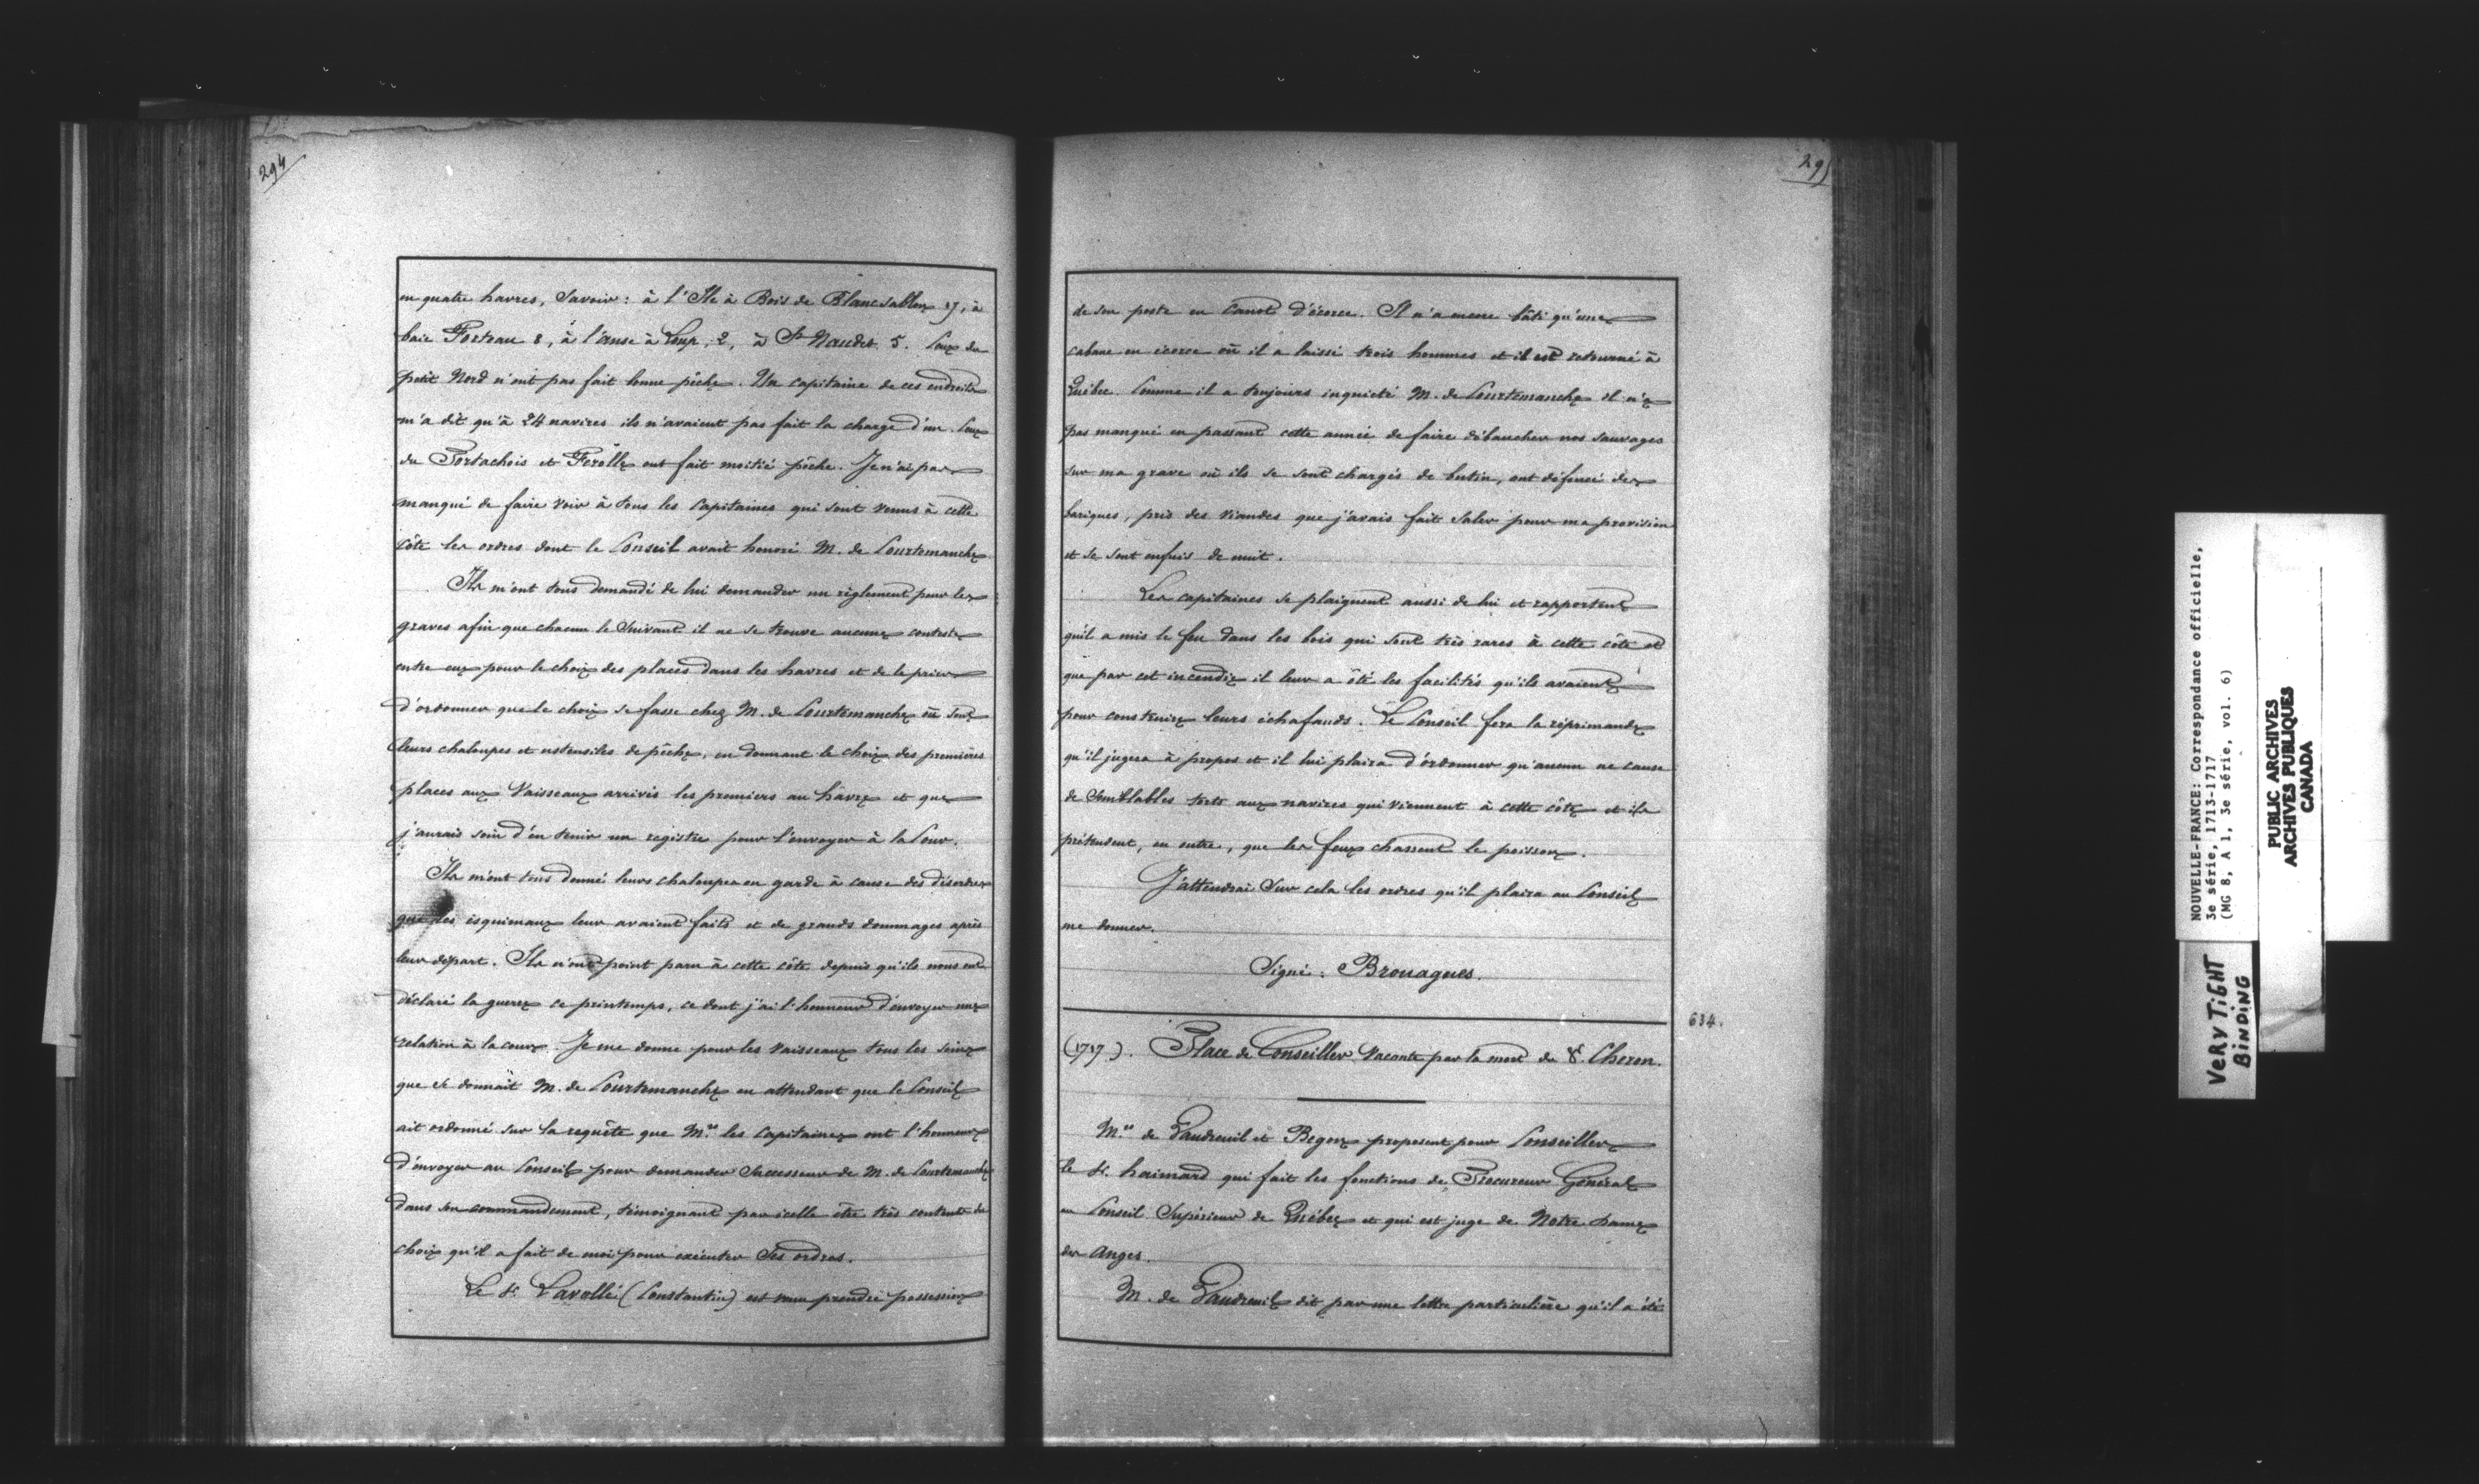 294
en quatre havres, Savoir : à l'Ile à Bois de Blancsablon 17, à
baie Forteau 8, à l'anse à Loup, 2, à St Naudet 5. Ceux du
petit Nord n'ont pas fait bonne pêche. Un capitaine de ces endroits
m'a dit qu'à 24 navires ils n'avaient pas fait la charge d'un. Ceux
du Portachois et Ferolle ont fait moitié pêche. Je n'ai pas
manqué de faire voir à tous les Capitaines qui sont venus à cette
Côte les ordres dont le Conseil avait honoré M. de Courtemanche
Ils m'ont tous demandé de lui demander un règlement pour les
graves afin que chacun le Suivant il ne se trouve aucune conteste
entre eux pour le choix des places dans les havres et de le prier
d'ordonner que le choix se fasse chez M. de Courtemanche où sont
leurs chaloupes et ustensiles de pêche, en donnant le choix des premières
places aux Vaisseaux arrivés les premiers au hâvre et que
j'aurais soin d'en tenir un registre pour l'envoyer à la Cour.
Ils m'ont tous donné leurs chaloupes en garde à cause des désordres
que les esquimaux leur avaient faits et de grands dommages après
leur départ. Ils n'ont point paru à cette côte depuis qu'ils nous ont
déclaré la guerre ce printemps, ce dont j'ai l'honneur d'envoyer une
relation à la cour. Je me donne pour les Vaisseaux tous les soins
que se donnait M. de Courtemanche en attendant que le Conseil
ait ordonné sur la requête que Mrs les Capitaines ont l'honneur
d'envoyer au Conseil pour demander Successeur de M. de Courtemanche
dans son commandement, témoignant par icelle être très contents du
choix qu'il a fait de moi pour exécuter Ses ordres.
Le Sr. Lavallé (Constantin) est venu prendre possession
295
de son poste en Canot d'écorce. Il n'a encore bâti qu'une
cabane en écorce où il a laissé trois hommes et il est retourné à
Québec. Comme il a toujours inquiété M. de Courtemanche il n'a
pas manqué en passant cette année de faire débaucher nos Sauvages
sur ma grave où ils se sont chargés de butin, ont défoncé des
bariques, pris des Viandes que j'avais fait Saler pour ma provision
et se sont enfuis de nuit.
Les capitaines se plaignent aussi de lui et rapportent
qu'il a mis le feu dans les bois qui sont très rares à cette côte et
que par cet incendie il leur a ôté les facilités qu'ils avaient
pour construire leurs échafauds. Le Conseil fera la réprimande
qu'il jugera à propos et il lui plaira d'ordonner qu'aucun ne cause
de Semblables torts aux navires qui viennent à cette côte et ils
prétendent, en outre, que les feux chassent le poisson.
J'attendrai Sur cela les ordres qu'il plaira au Conseil
me donner.
Signé : Brouagues.
634.
(1717). Place de Conseiller Vacante par la mort du Sr. Cheron.
Mrs de Vaudreuil et Begon proposent pour Conseiller
le Sr. haimard qui fait les fonctions de Procureur Général
au Conseil Supérieur de Québec et qui est juge de Notre Dame
des Anges.
M. de Vaudreuil dit par une lettre particulière qu'il a été
NOUVELLE-FRANCE: Correspondance officielle,
3e série, 1713-1717
(MG 8, A 1, 3e série, vol. 6)
PUBLIC ARCHIVES
ARCHIVES PUBLIQUES
CANADA
VERY TIGHT
BINDING